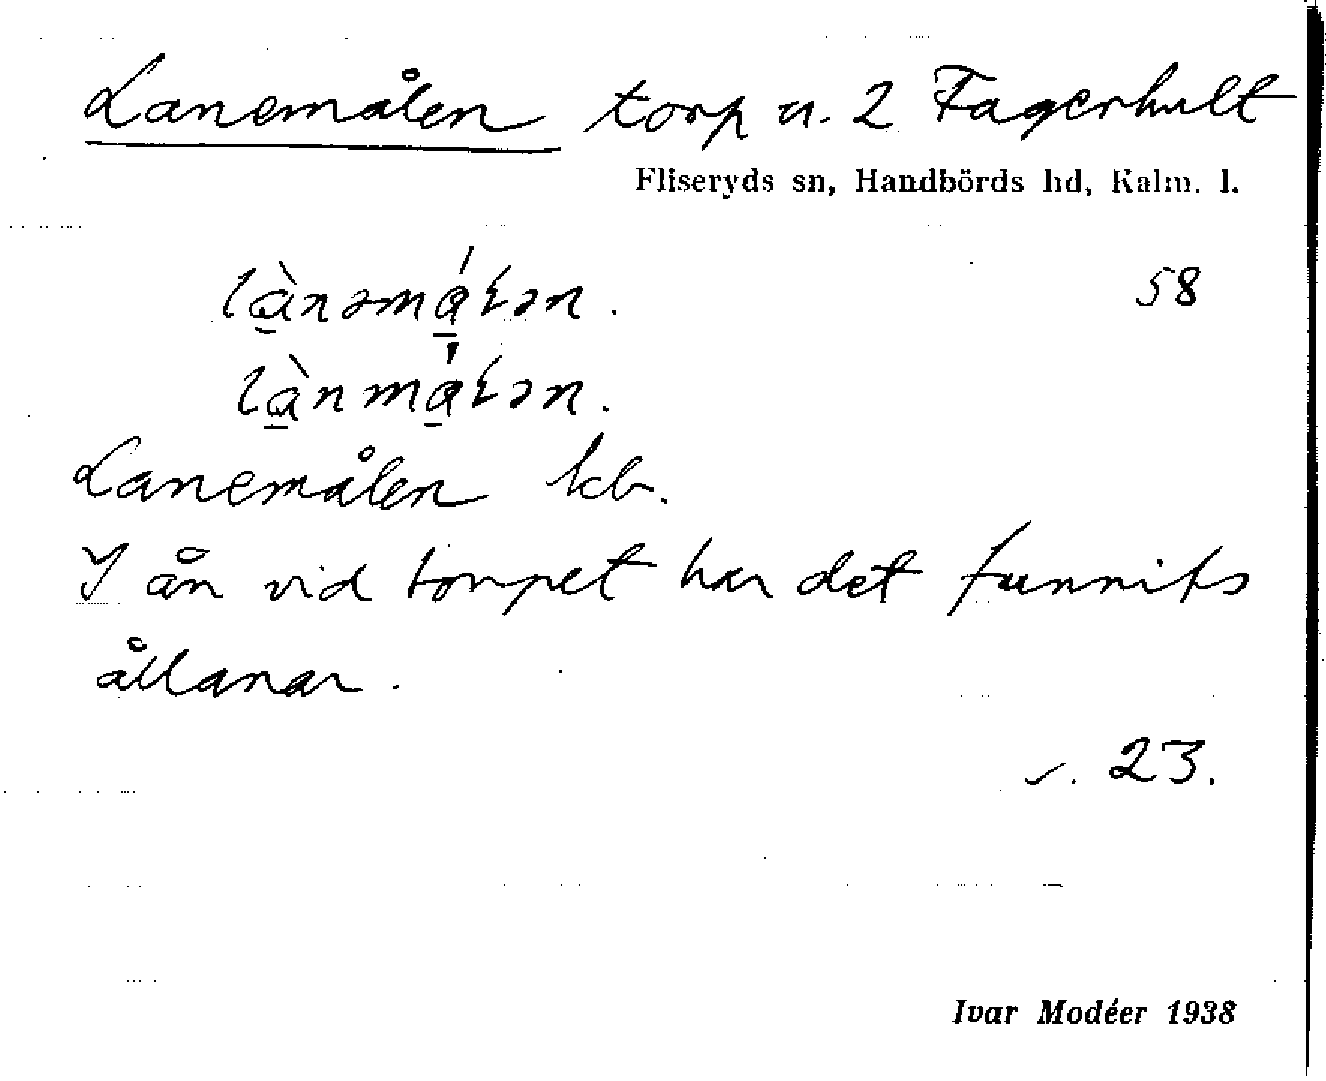 Lanemålen torp u. 2 Fagerhult
Fliseryds sn, Handbörds hd, Kalm. l.
58
Lanemålen kb.
I ån vid torpet har det funnits
ållanar.
s. 23.
Ivar Modéer 1938